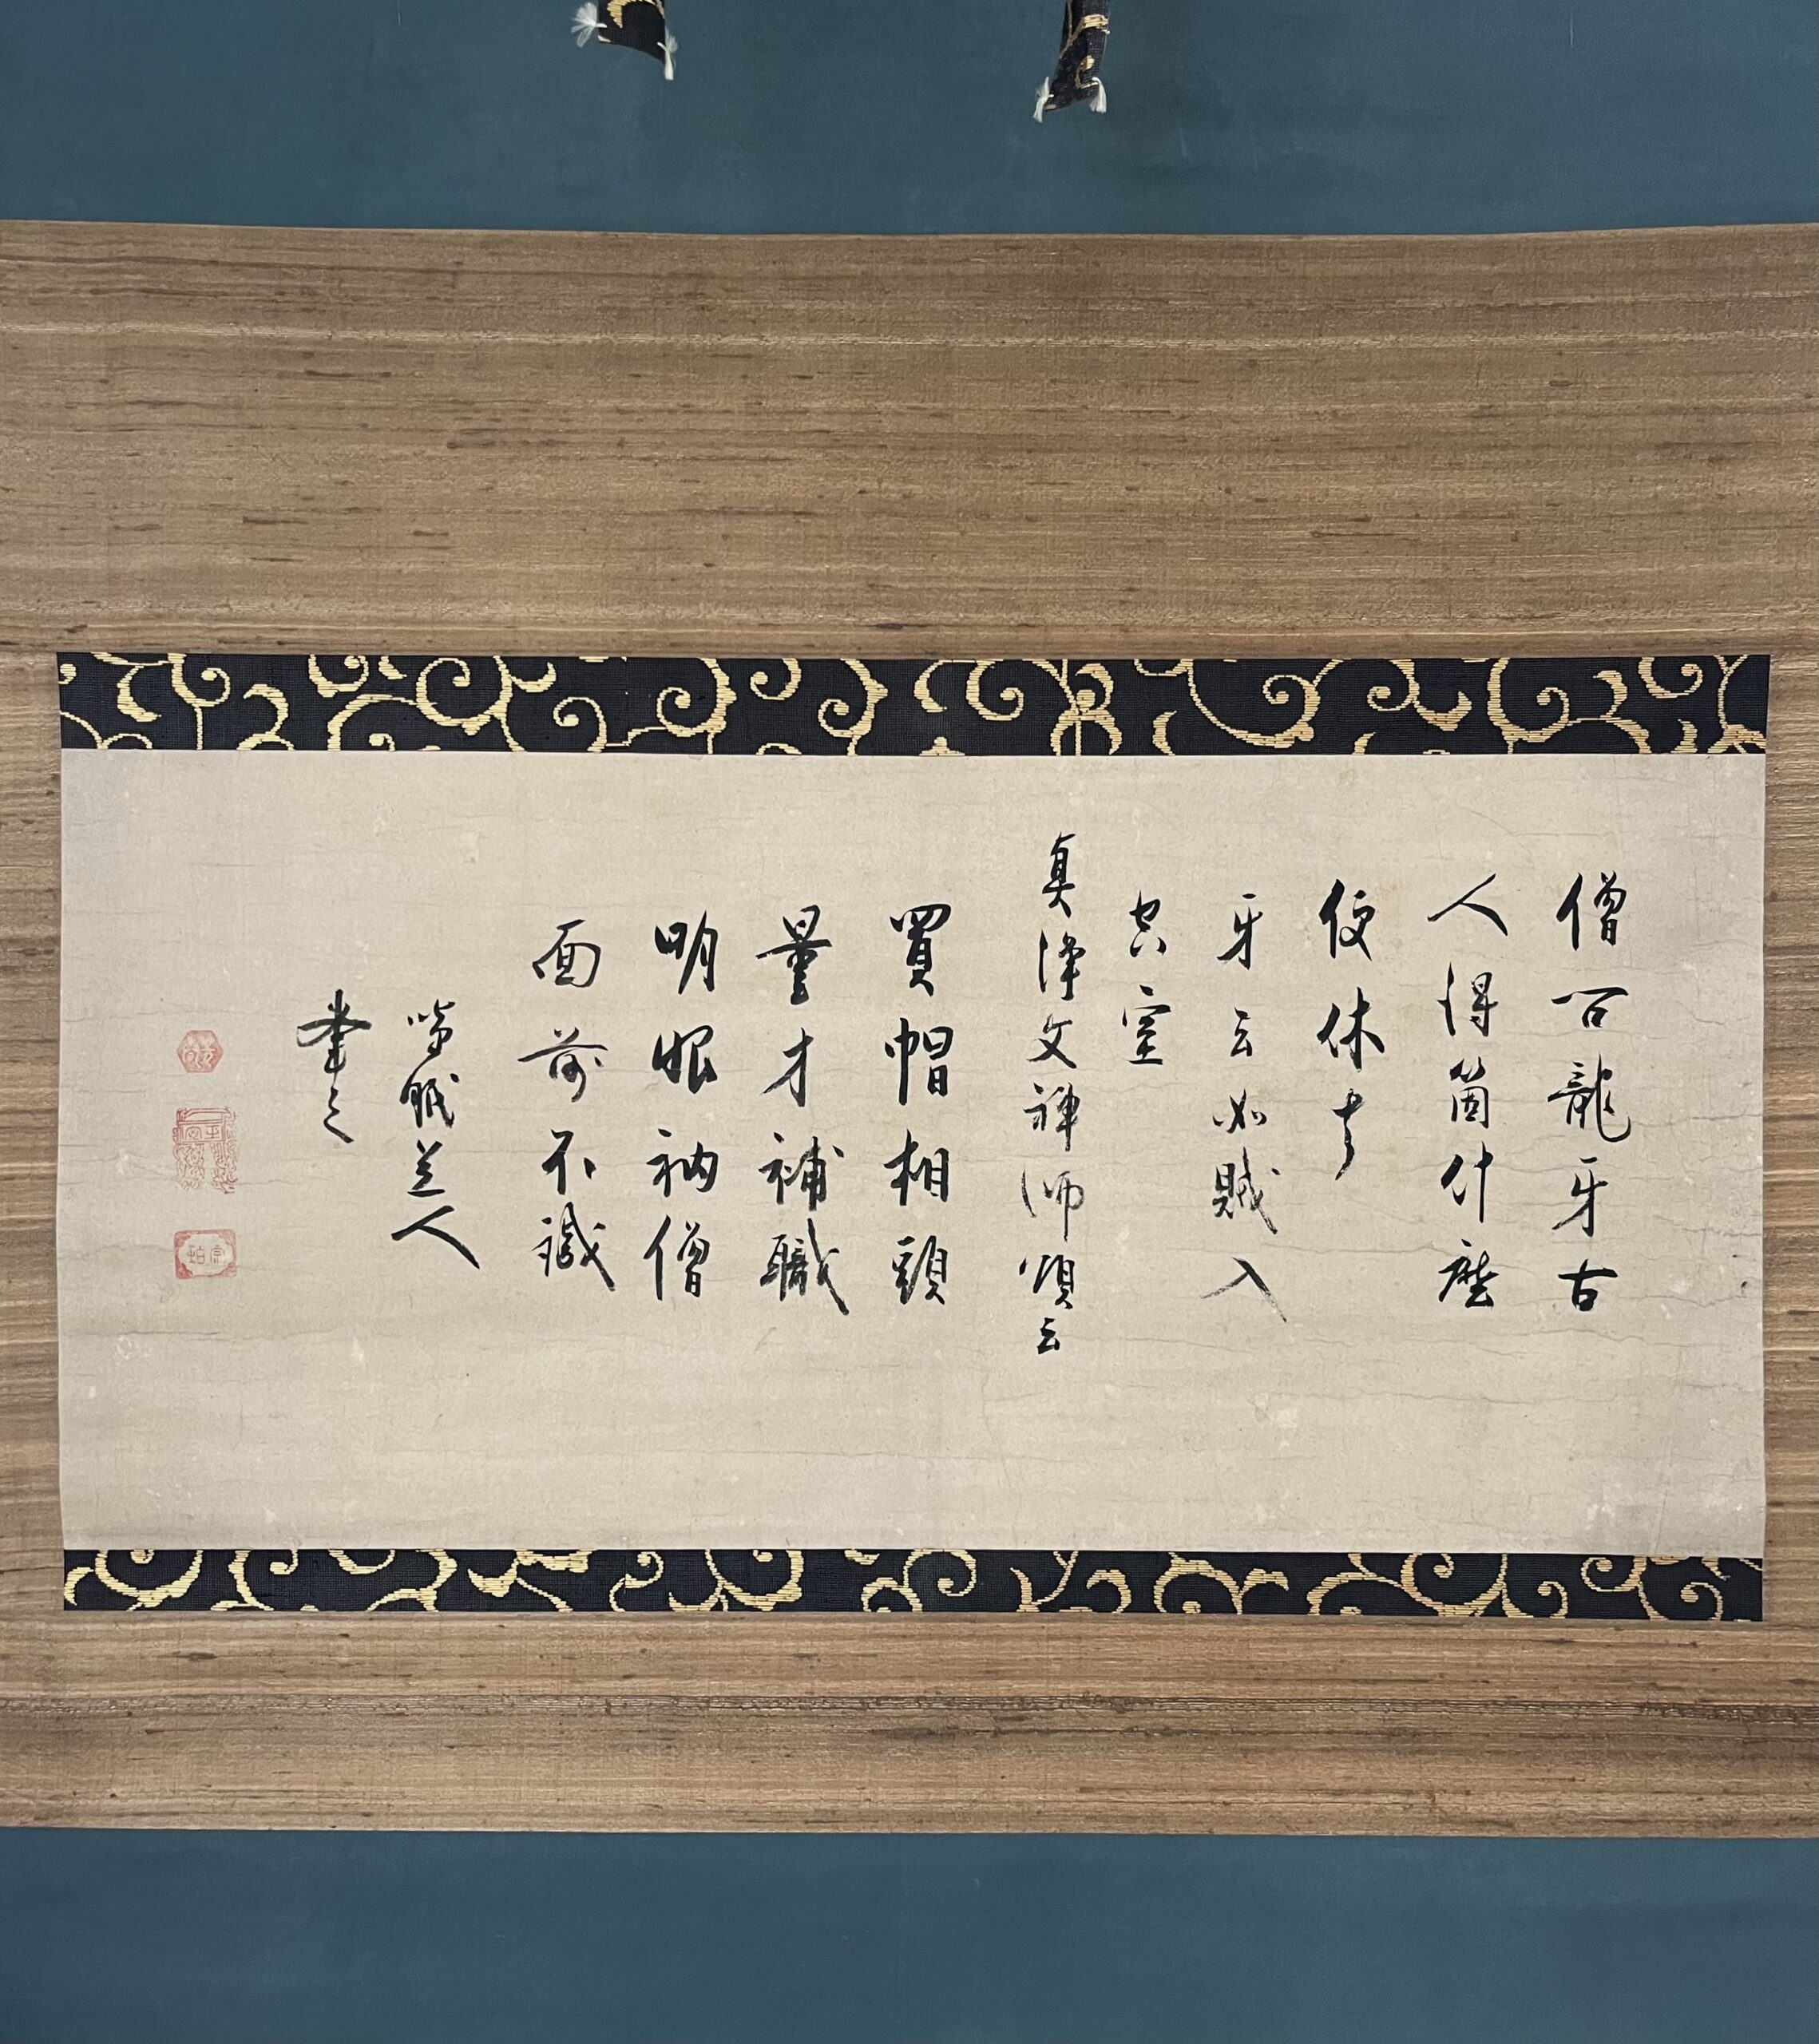 僧問龍牙古
人得箇什麼
便休去
牙云如賊入
空室
真淨文禅師頌云
買帽相頭
量才補職
明眼衲僧
面前不識
眠芝人
筆之